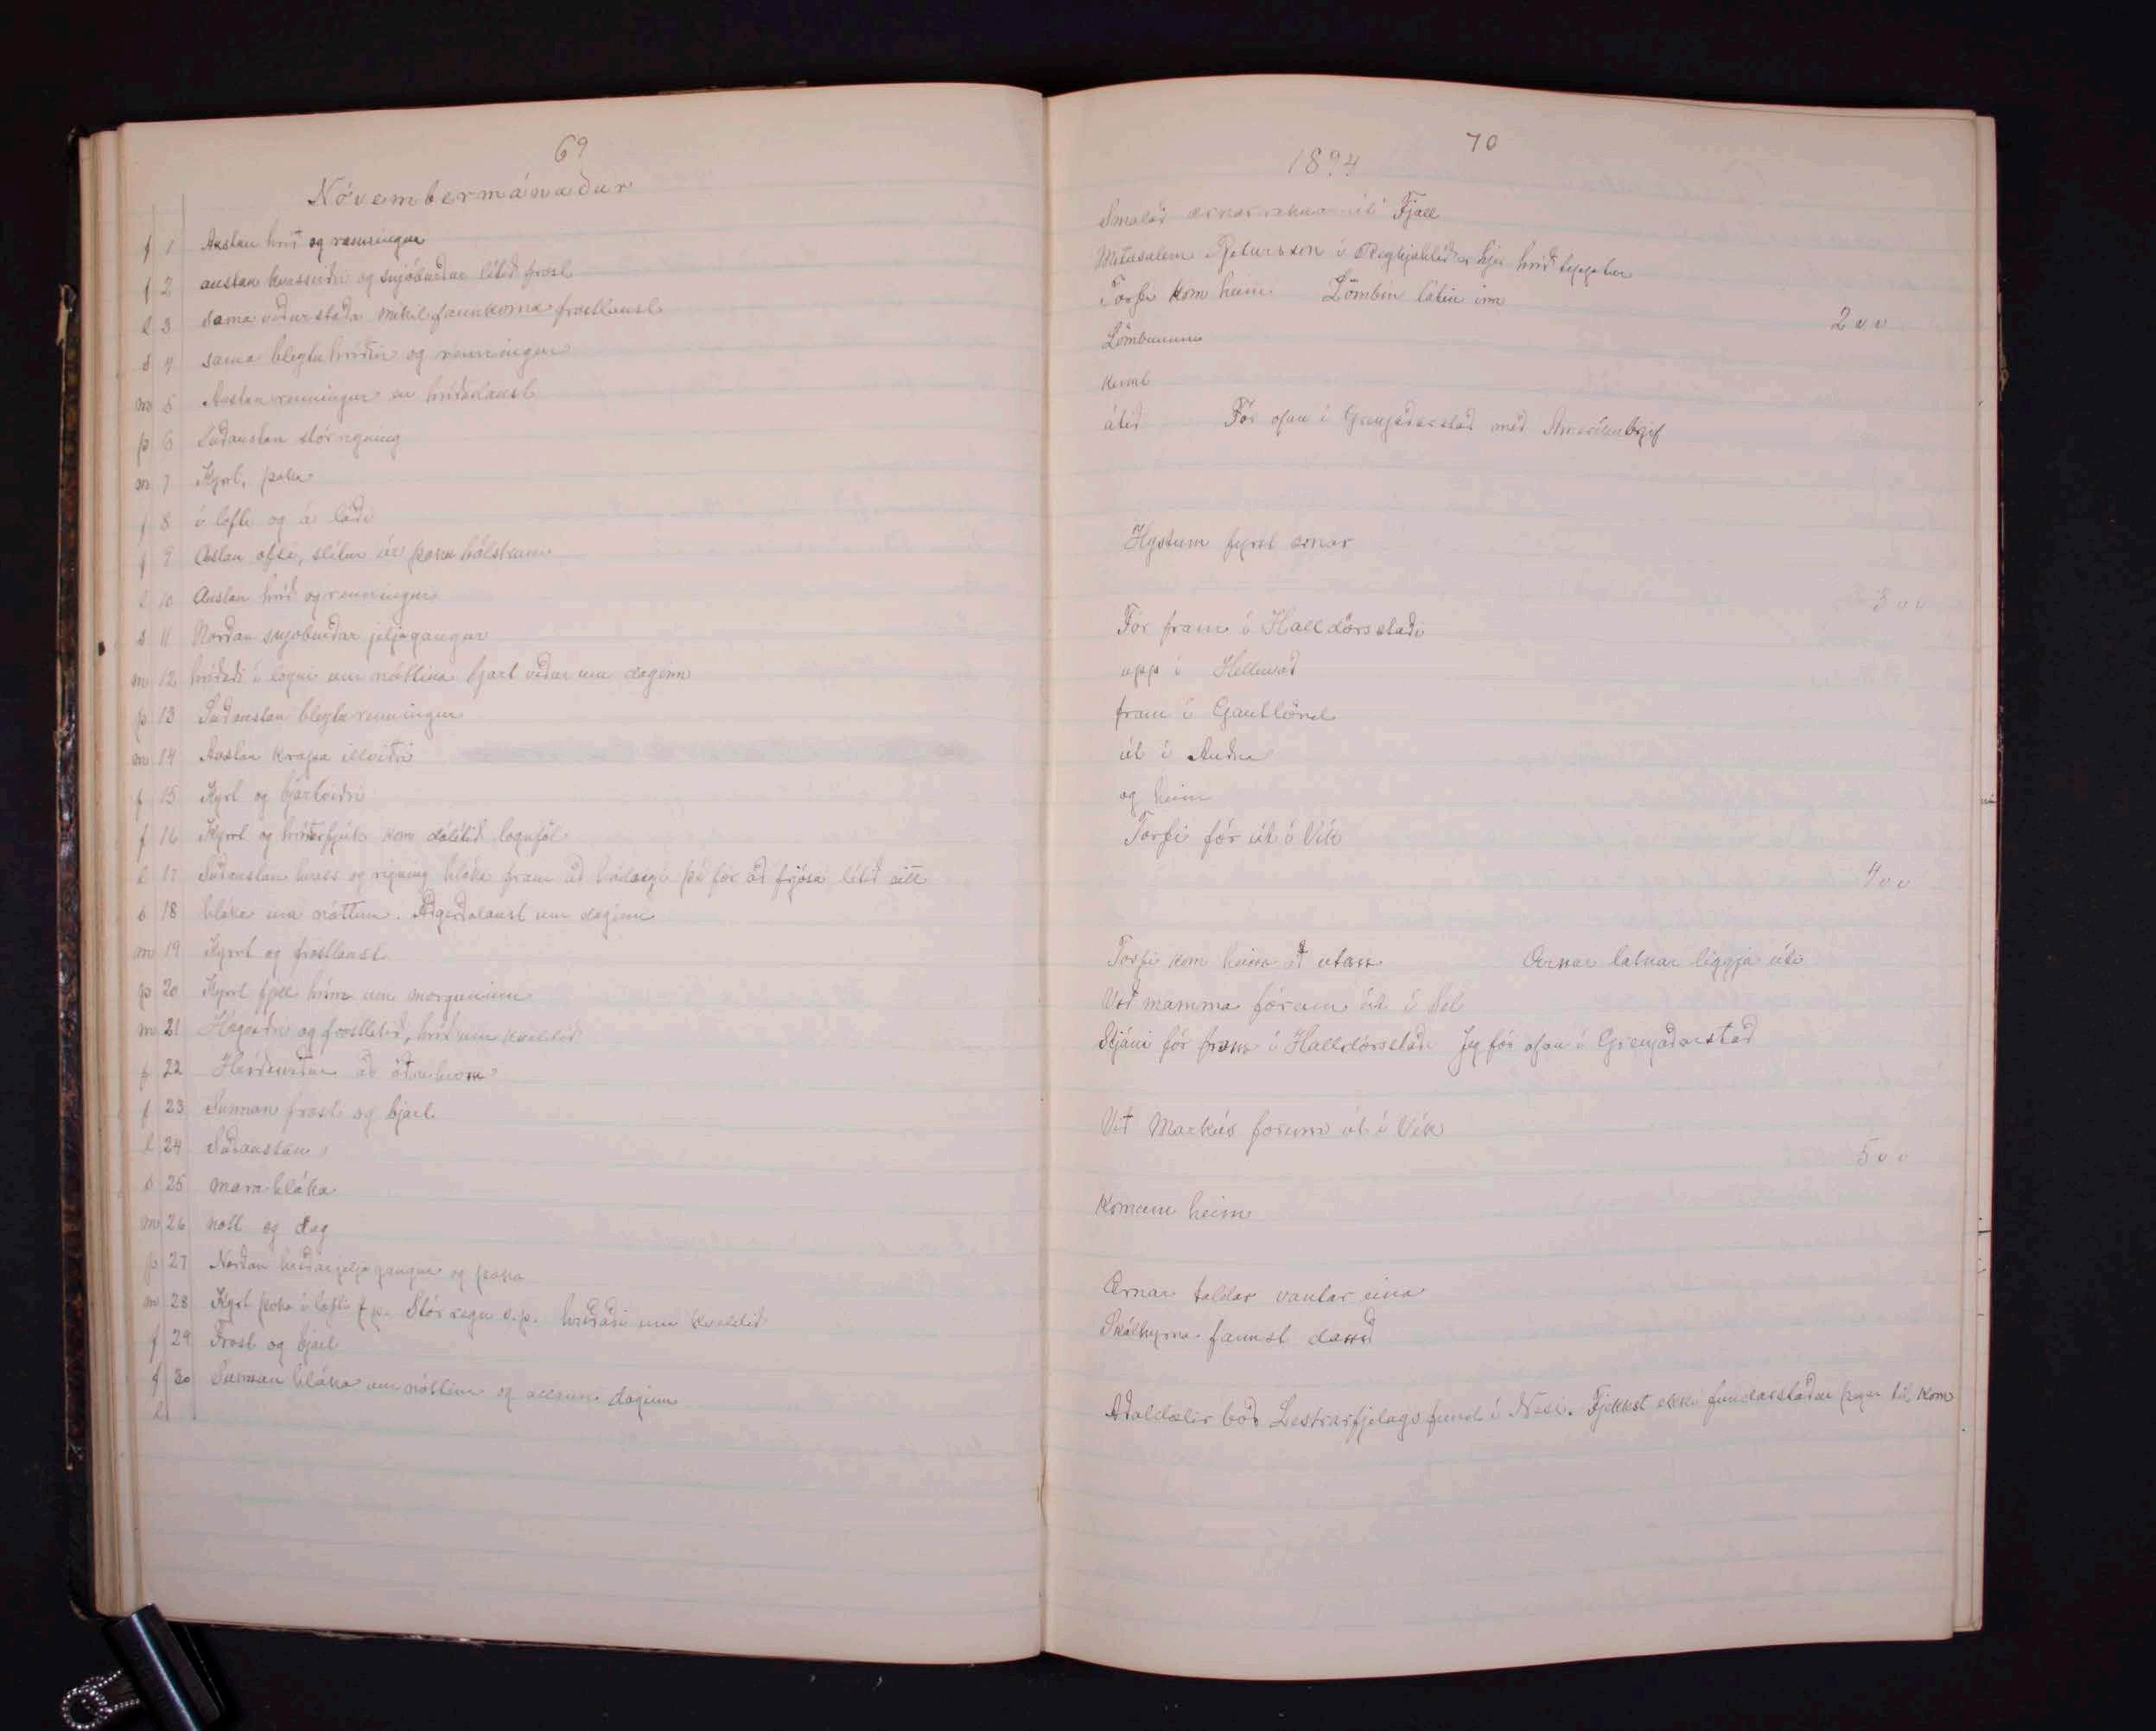 69
Nóvembermánaður
f 1 Austan hríð og renningur
f 2 austan hvassviðri og snjóburður lítið frost
l 3 sama veðurstaða mikil fannkoma frostlaust
s 4 sama bleytuhríðin og renningur
m 5 Austan renningur en hríðarlaust
þ 6 Suðaustan stórrigning
m 7 Kyrt, þoka
f 8 í lofti og á láði
f 9 Austan ofsi, slítur úr þoku bólstrum
l 10 Austan hríð og renningur
s 11 Norðan snjóburðar jeljagangur
m 12 hríðaði í logni um nóttina bjart veður um daginn
þ 13 Suðaustan bleytu renningur
m 14 Austan krapa illviðri
f 15 Kyrt og bjartviðri
f 16 Kyrrt og kom dálítið lognföl
l 17 Suðaustan hvass og rigning hláka fram að hádegi þá fór að frjósa lítið eitt
s 18 hláka um nóttina. Aðgerðalaust um daginn
m 19 Kyrrt og frostlaust
þ 20 Kyrrt fjell hríma um morguninn
m 21 Hægviðri og frostlítið, hríð um kveldið
f 22 Hríðarveður að öðru hvoru
f 23 Sunnan frost og bjart
l 24 Suðaustan
s 25 mara hláka
m 26 nótt og dag
þ 27 Norðan hríðarjelja gangur og þoka
m 28 Kyrt þoka í lofti f.p. Stórregn s.p. hríðaði um kveldið
f 29 Frost og bjart
f 30 Sunnan hláka um nóttina og allann daginn
l
70
1894
Smalað ærnar vakna úti Fjall
Metúsalem Pjetursson í Reykjahlíð er hjer hríðteptur
Torfi kom heim Lömbin látin inn
200
Lömbunum
kent
átið Fór ofan í Grenjaðarstað með Ameríkubrjef
Hystum fyrst ærnar
300
Fór fram í Halldórsstaði
upp í Helluvað
fram í Gautlönd
út í Auðna
og heim
Torfi fór út í Vík
400
Torfi kom heim að utann Ærnar látnar liggja úti
Við mamma fórum út í Sel
Stjáni fór fram í Halldórsstaði Jeg fór ofan í Grenjaðarstað
Við Markús forum út í Vík
500
Komum heim
Ærnar taldar vantar eina
Skálhyrna fannst dauð
Aðaldælir boð Lestrarfjelags fund í Nesi. Fjekkst ekki fundarstaður þegar til kom